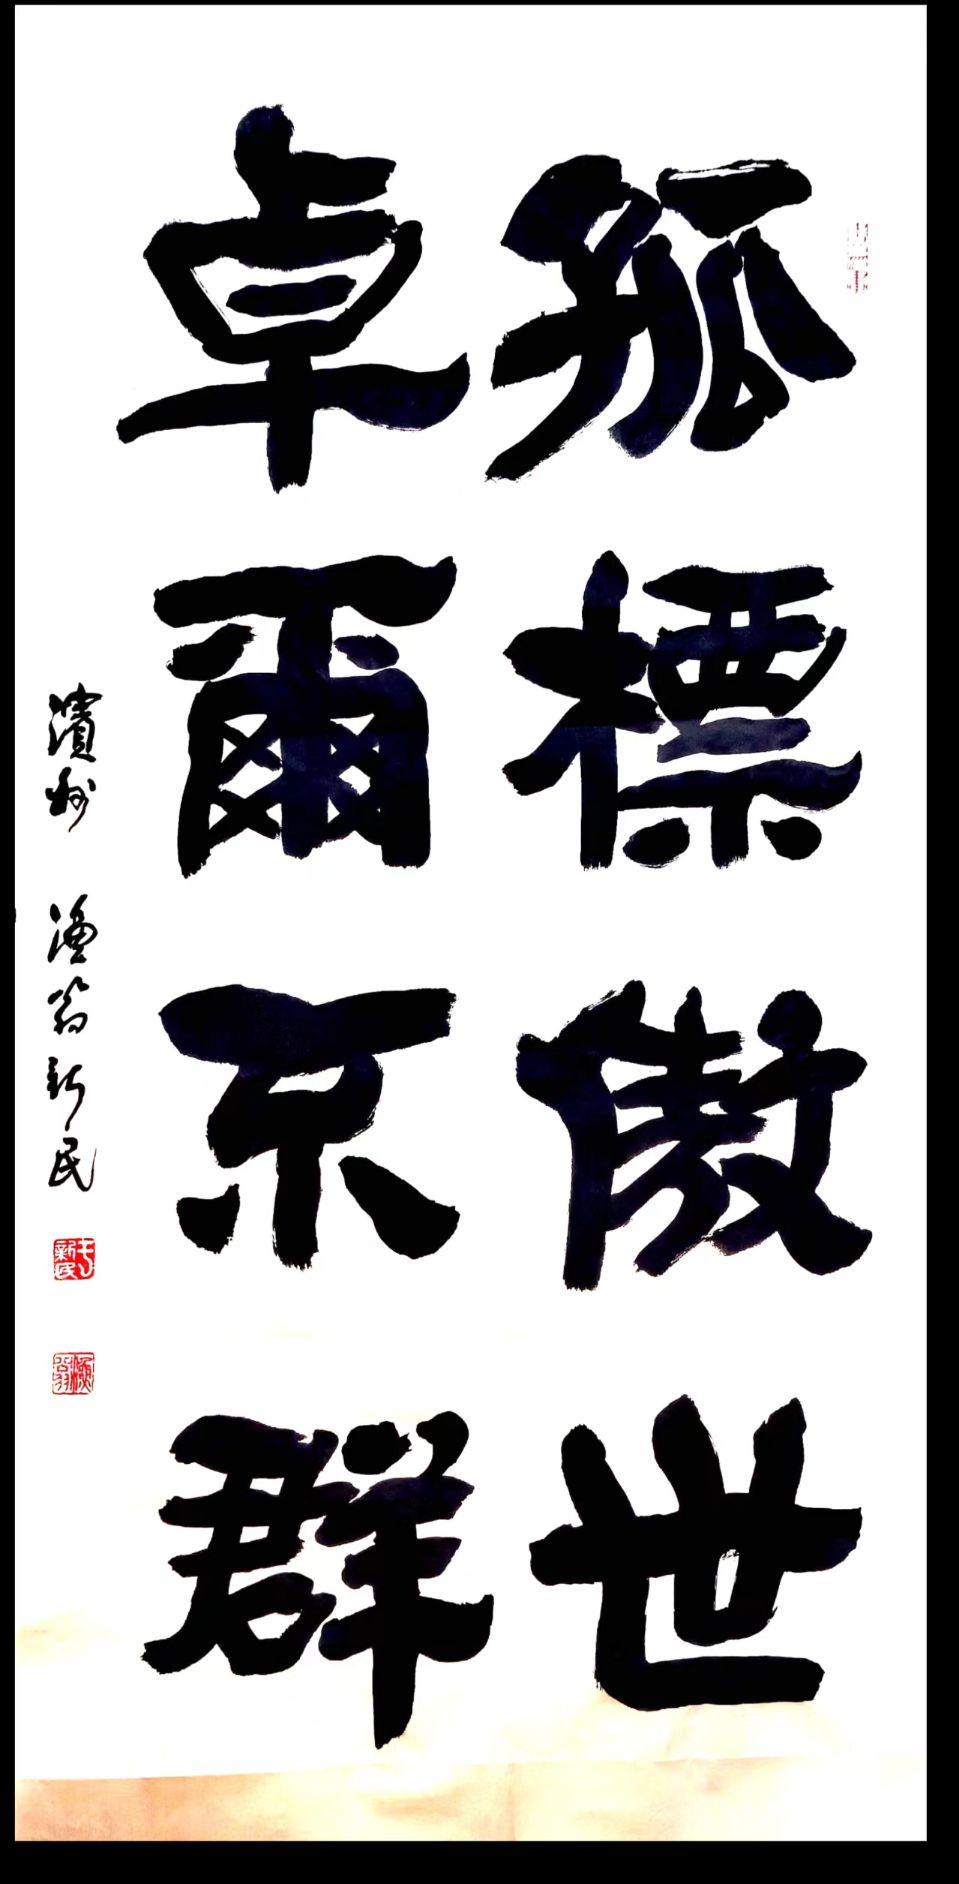 孤標傲世
卓爾不群
濱州 漁翁新民